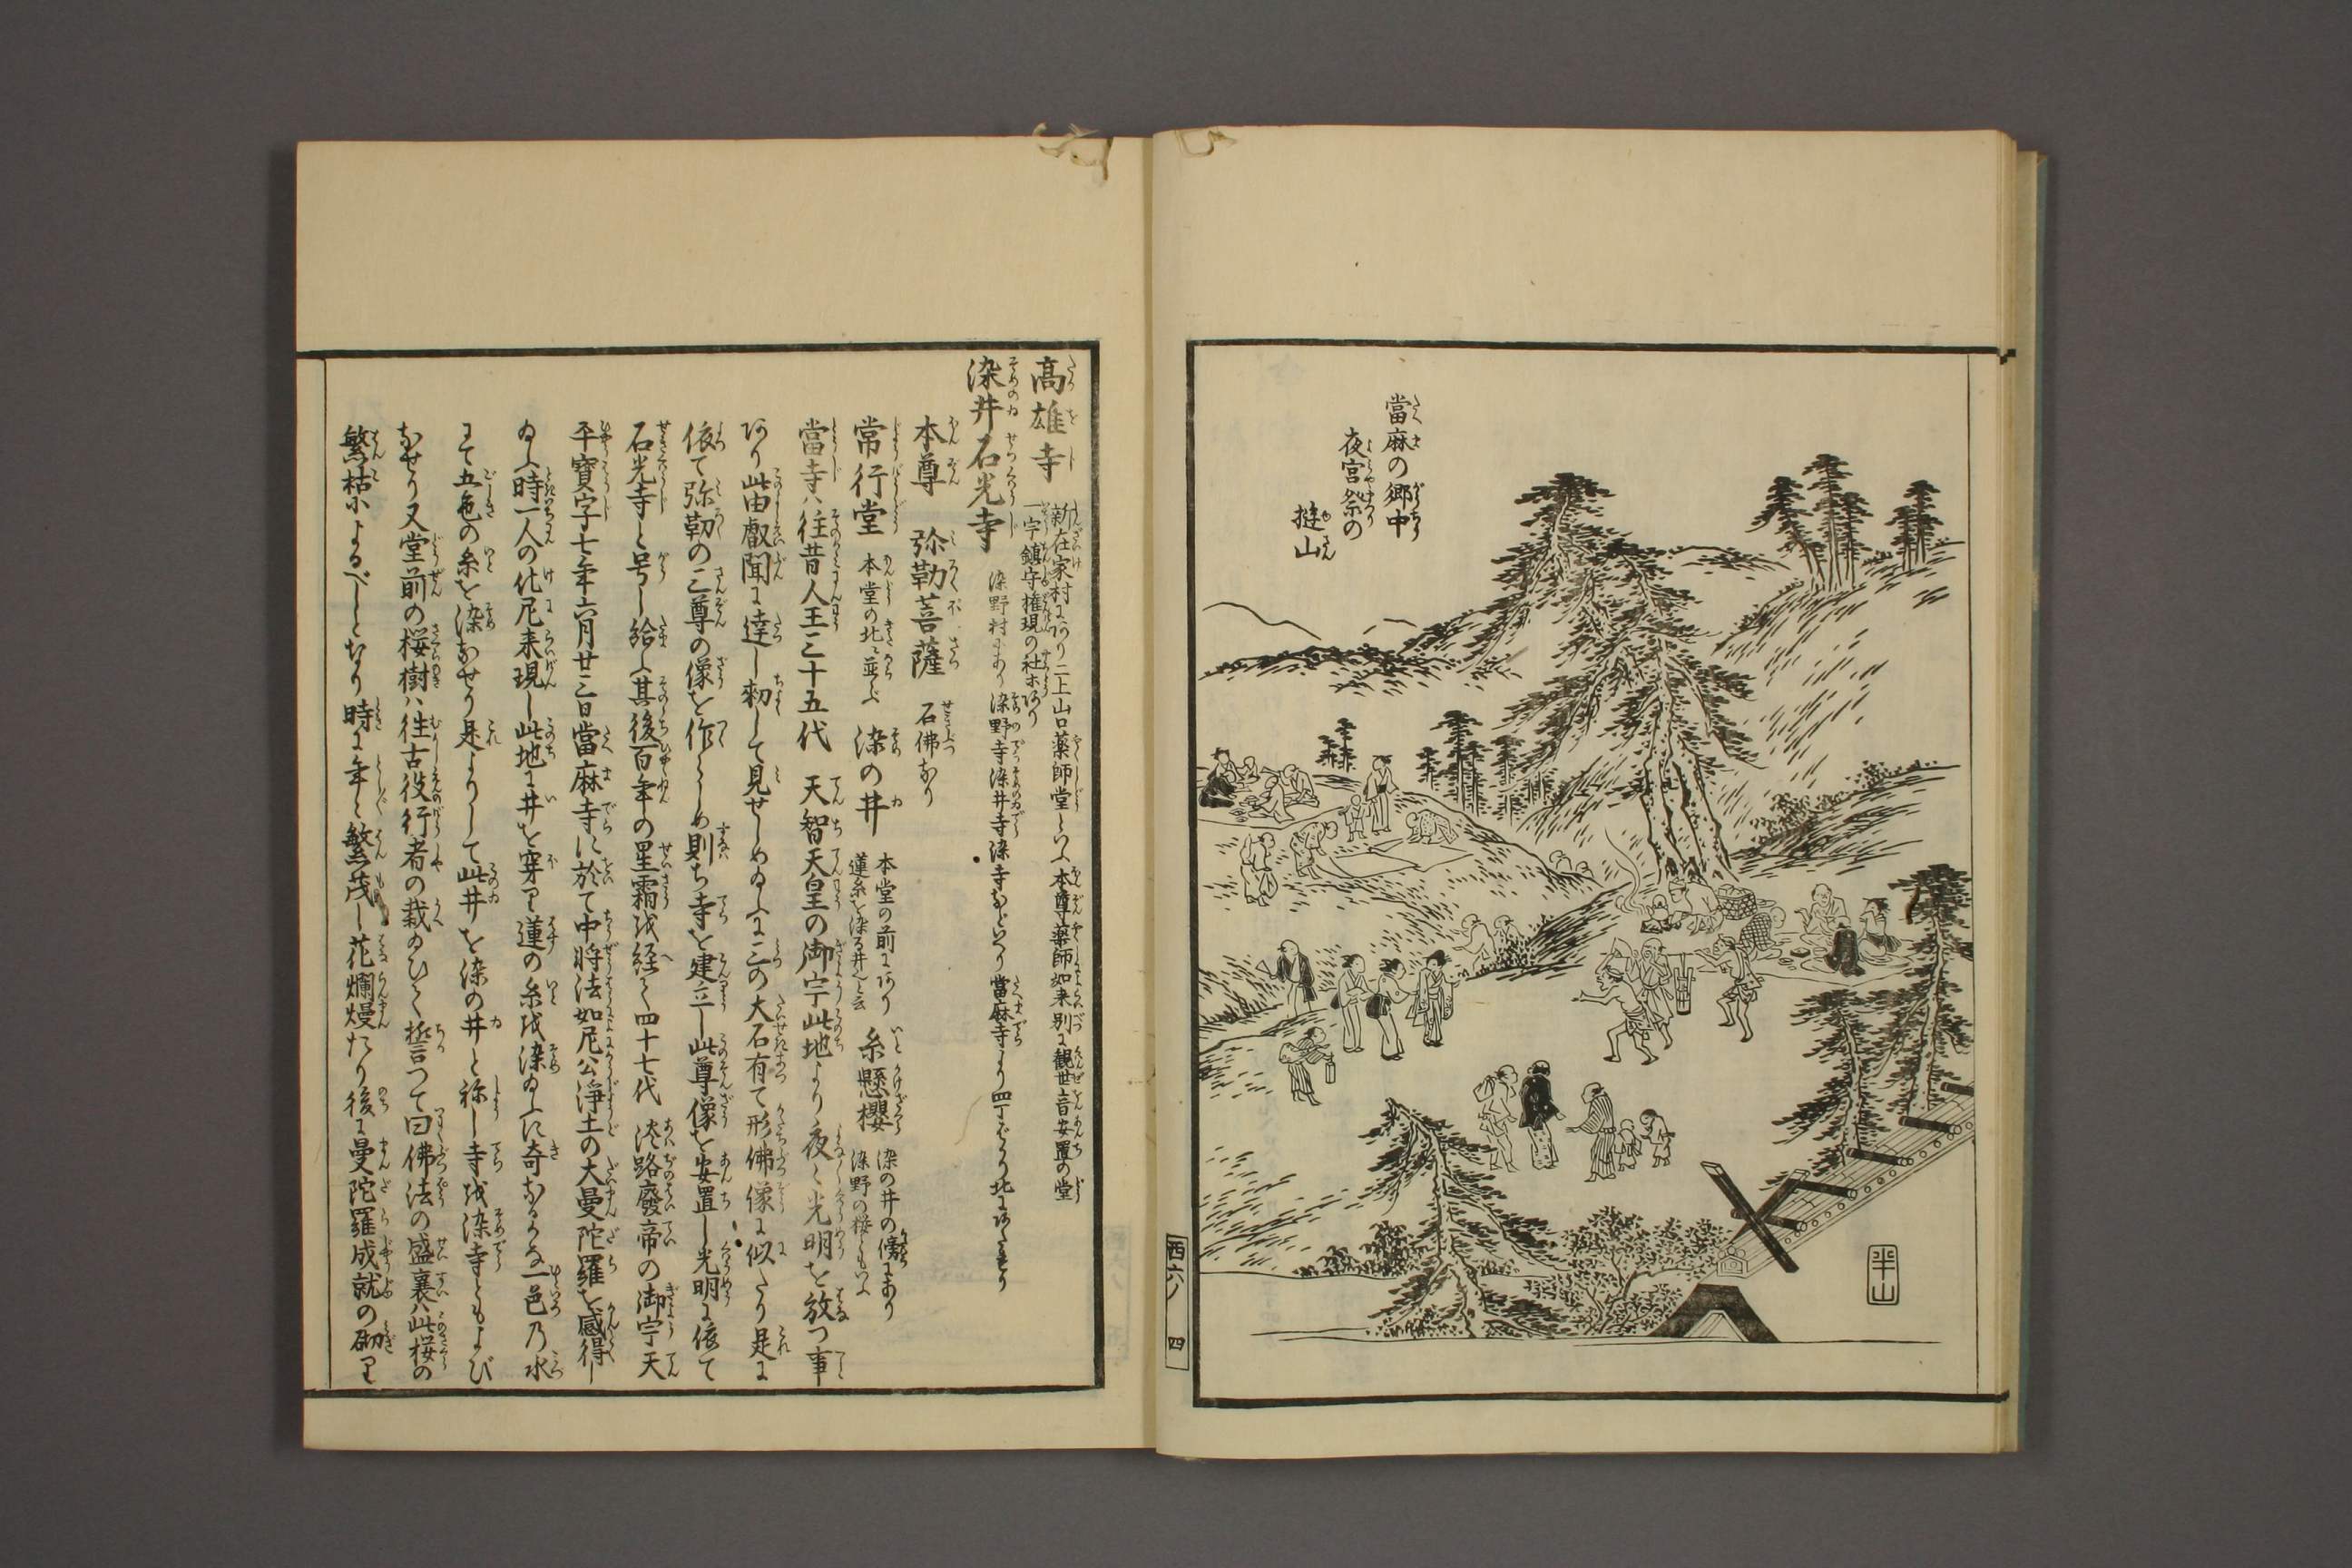 當麻の郷中
夜宮祭の
挺山
半山
西六ノ 四
高雄寺
新在家村にあり二上山口薬師堂といふ本尊薬師如来別に観世音安置の堂
一宇鎮守権現の社ホあり
染井石光寺
染野村にあり染野寺染井寺染寺などいへり當麻寺より四丁ばかり北にあたれり
本尊 弥勒菩薩 石佛なり
常行堂 本堂の北に並ぶ 染の井
本堂の前にあり
蓮糸を染る井と云
糸懸櫻
染の井の傍にあり
染野の桜ともいふ
當寺ハ往昔人王三十五代 天智天皇の御宇此地より夜々光明を放つ事
あり此由叡聞に達し勅して見せしめ給ふに三の大石有て形佛像に似たり是に
依て弥勒の三尊の像を作らしめ則ち寺を建立し此尊像を安置し光明に依て
石光寺と号し給ふ其後百年の星霜を経て四十七代 淡路廢帝の御宇天
平寶字七年六月廿三日當麻寺に於て中将法如尼公淨土の大曼陀羅を感得し
給ふ時一人の化尼来現し此地に井を穿り蓮の糸を染給ふに奇なるかな一色乃水
にて五色の糸を染なせり是よりして此井を染の井と称し寺を染寺ともよび
なせり又堂前の桜樹ハ往古役行者の栽給ひて誓つて曰佛法の盛衰ハ此桜の
繁枯によるべしとなり時に年々繁茂し花爛熳たり後に曼陀羅成就の砌り